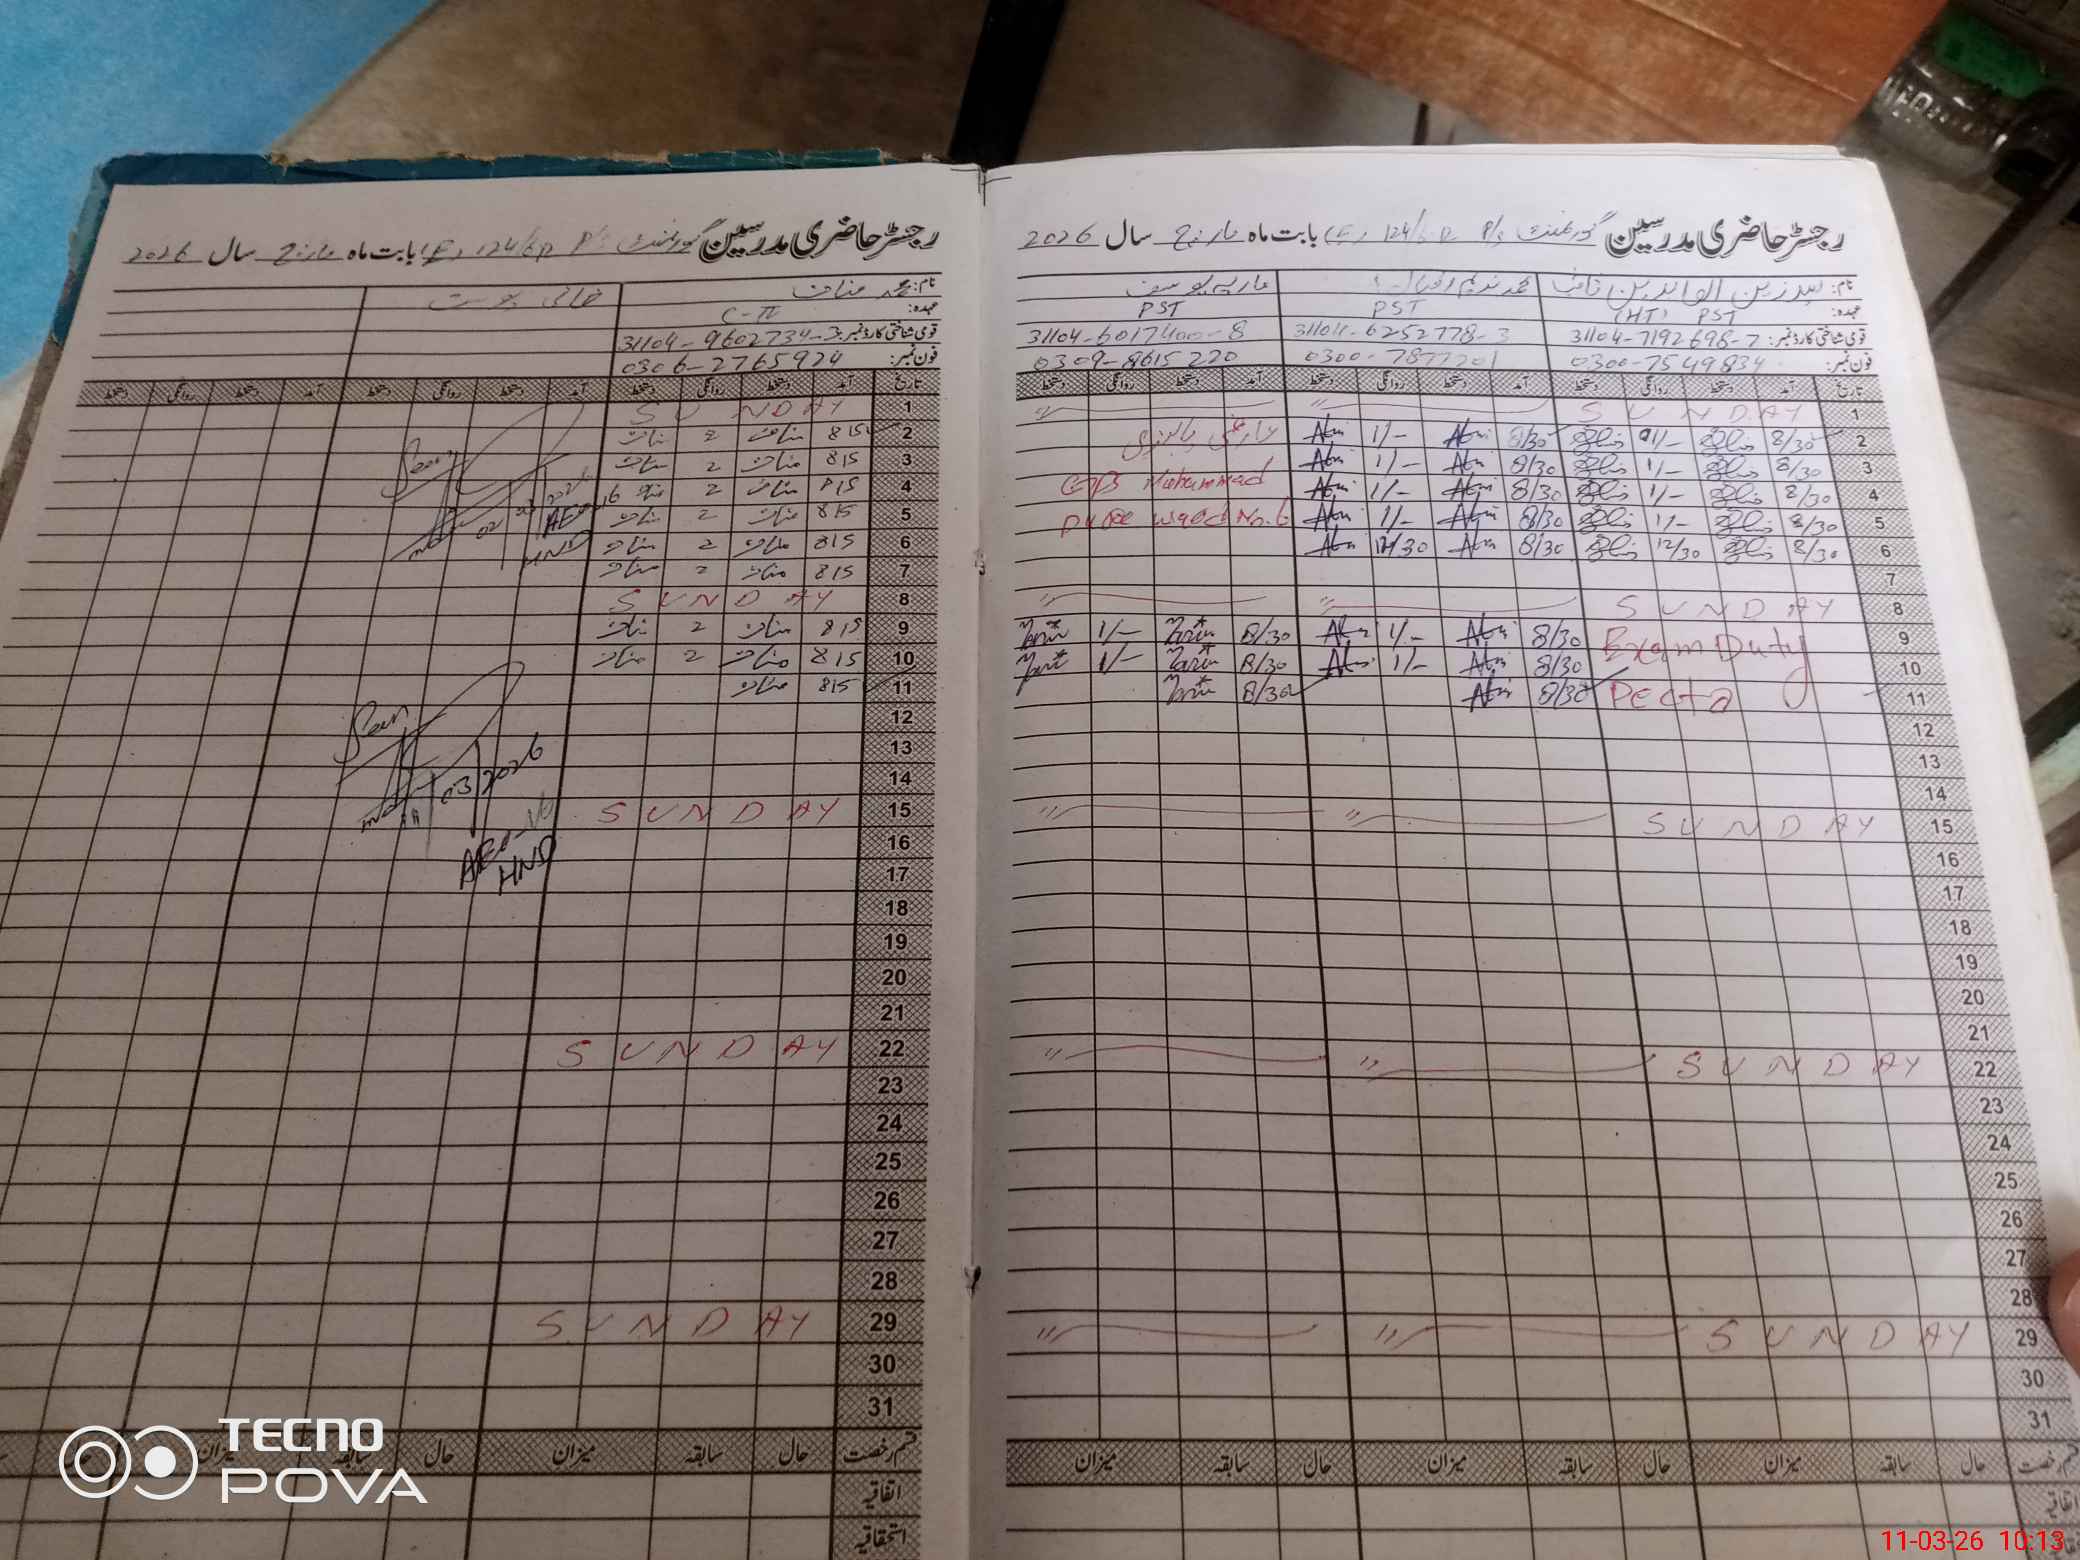 رجسٹر حاضری مدرسین گورنمنٹ P/S 124/6R (E) بابت ماہ مارچ سال 2026
نام: محمد مناف خالی پوسٹ
عہدہ: C-IV
قومی شناختی کارڈ نمبر: 31104-9602734-3
فون نمبر: 0306-2765924
تاریخ آمد دستخط روانگی دستخط آمد دستخط روانگی دستخط آمد دستخط روانگی دستخط
1 SUNDAY
2 815 مناف 2 مناف
3 815 مناف 2 مناف
4 815 مناف 2 مناف
5 815 مناف 2 مناف
6 815 مناف 2 مناف
7 815 مناف 2 مناف
8 SUNDAY
9 815 مناف 2 مناف
10 815 مناف 2 مناف
11 815 مناف
12
13
14
15 SUNDAY
16
17
18
19
20
21
22 SUNDAY
23
24
25
26
27
28
29 SUNDAY
30
31
Seen
02
AEO
HND
Seen
11/03/2026
AEO
HND
قسم رخصت حال سابقہ میزان حال سابقہ میزان حال
اتفاقیہ
استحقاقیہ
رجسٹر حاضری مدرسین گورنمنٹ P/S 124/6R (E) بابت ماہ مارچ سال 2026
نام: سید زین العابدین محمد ندیم اقبال ماریہ یوسف
عہدہ: PST (HT) PST PST
قومی شناختی کارڈ نمبر: 31104-7192698-7 31104-6252778-3 31104-6017400-8
فون نمبر: 0300-7549834 0300-7877201 0309-8615220
تاریخ آمد دستخط روانگی دستخط آمد دستخط روانگی دستخط آمد دستخط روانگی دستخط
1 SUNDAY
2 8/30 1/- 8/30 1/- عارضی
3 8/30 1/- 8/30 1/-
4 8/30 1/- 8/30 1/- Muhammad
5 8/30 1/- 8/30 1/- No. 6
6 8/30 12/30 8/30 12/30
7
8 SUNDAY
9 Exam Duty 8/30 1/- 8/30 1/-
10 8/30 1/- 8/30 1/-
11 Pecta 8/30 8/30
12
13
14
15 SUNDAY
16
17
18
19
20
21
22 SUNDAY
23
24
25
26
27
28
29 SUNDAY
30
31
قسم رخصت حال سابقہ میزان حال سابقہ میزان حال سابقہ میزان
اتفاقیہ
TECNO
POVA
11-03-26 10:13